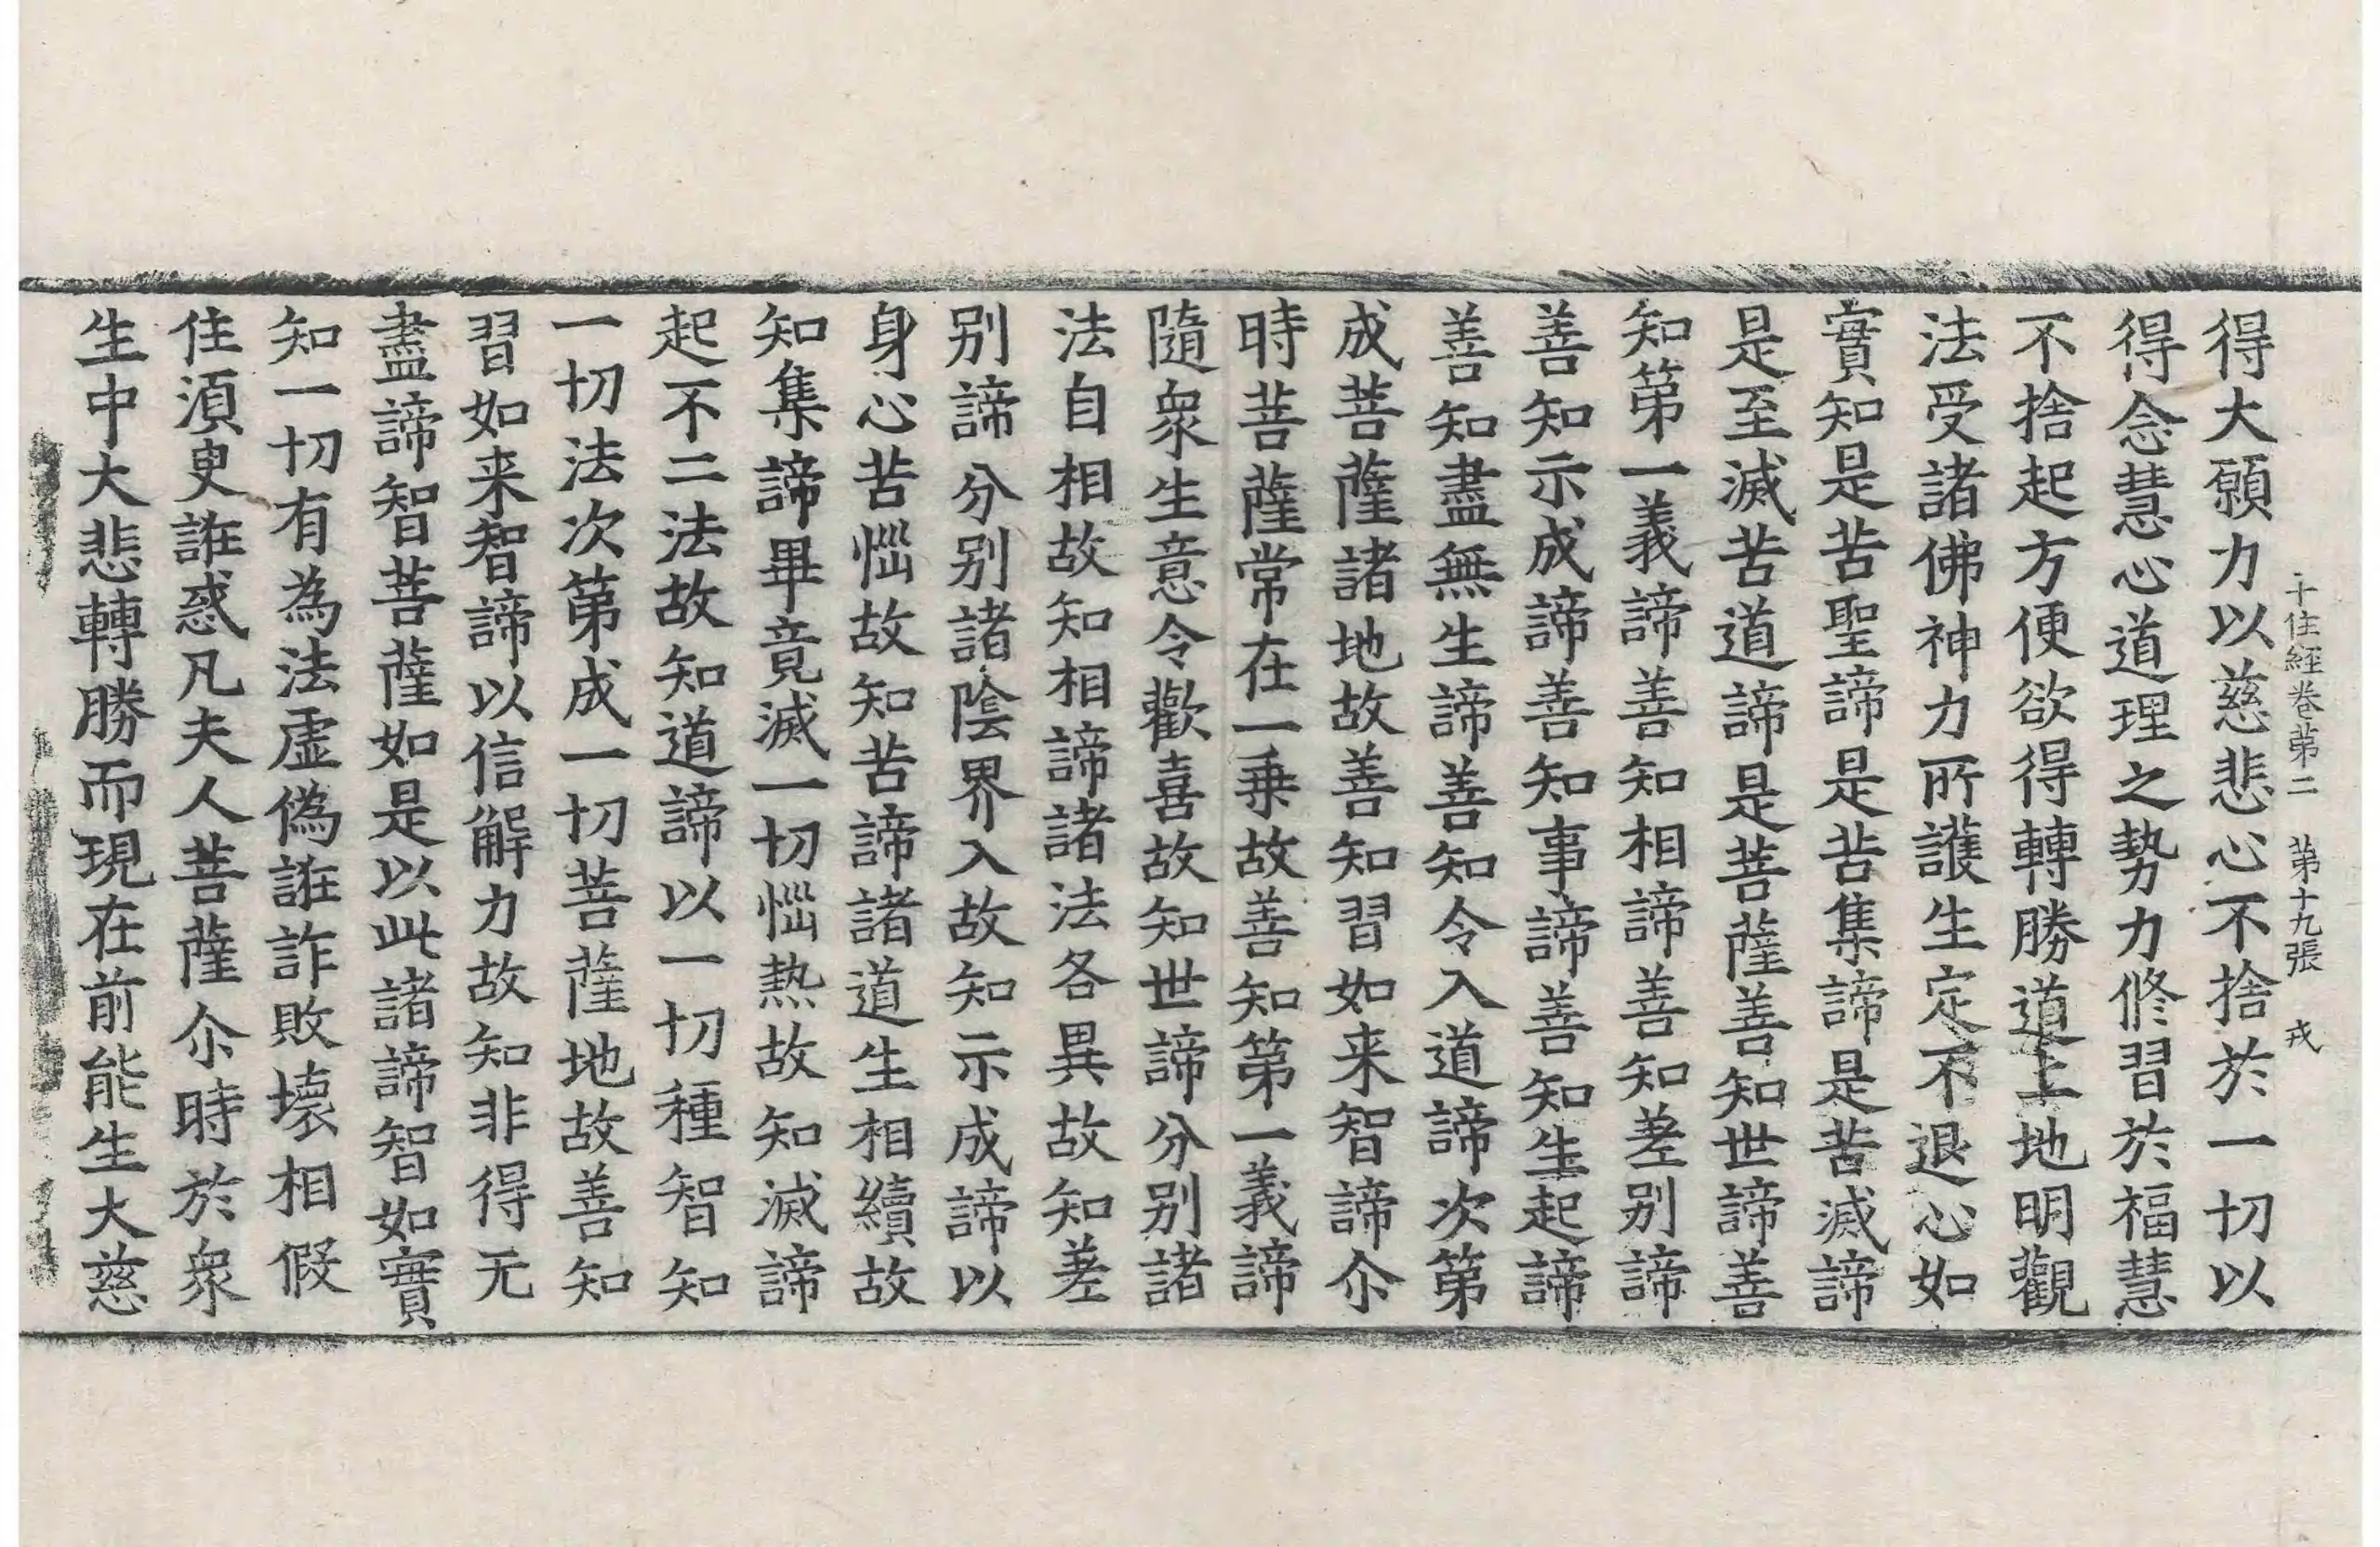 十住經卷第二 第十九張 戎
得大願力以慈悲心不捨於一切以
得念慧心道理之勢力修習於福慧
不捨起方便欲得轉勝道上地明觀
法受諸佛神力所護生定不退心如
實知是苦聖諦是苦集諦是苦滅諦
是至滅苦道諦是菩薩善知世諦善
知第一義諦善知相諦善知差别諦
善知示成諦善知事諦善知生起諦
善知盡無生諦善知令入道諦次第
成菩薩諸地故善知習如来智諦尒
時菩薩常在一乗故善知第一義諦
隨衆生意令歡喜故知世諦分别諸
法自相故知相諦諸法各異故知差
别諦分别諸陰界入故知示成諦以
身心苦惱故知苦諦諸道生相續故
知集諦畢竟滅一切惱熱故知滅諦
起不二法故知道諦以一切種智知
一切法次第成一切菩薩地故善知
習如来智諦以信解力故知非得无
盡諦智菩薩如是以此諸諦智如實
知一切有為法虛偽誑詐敗壞相假
住須臾誑惑凡夫人菩薩尒時於衆
生中大悲轉勝而現在前能生大慈